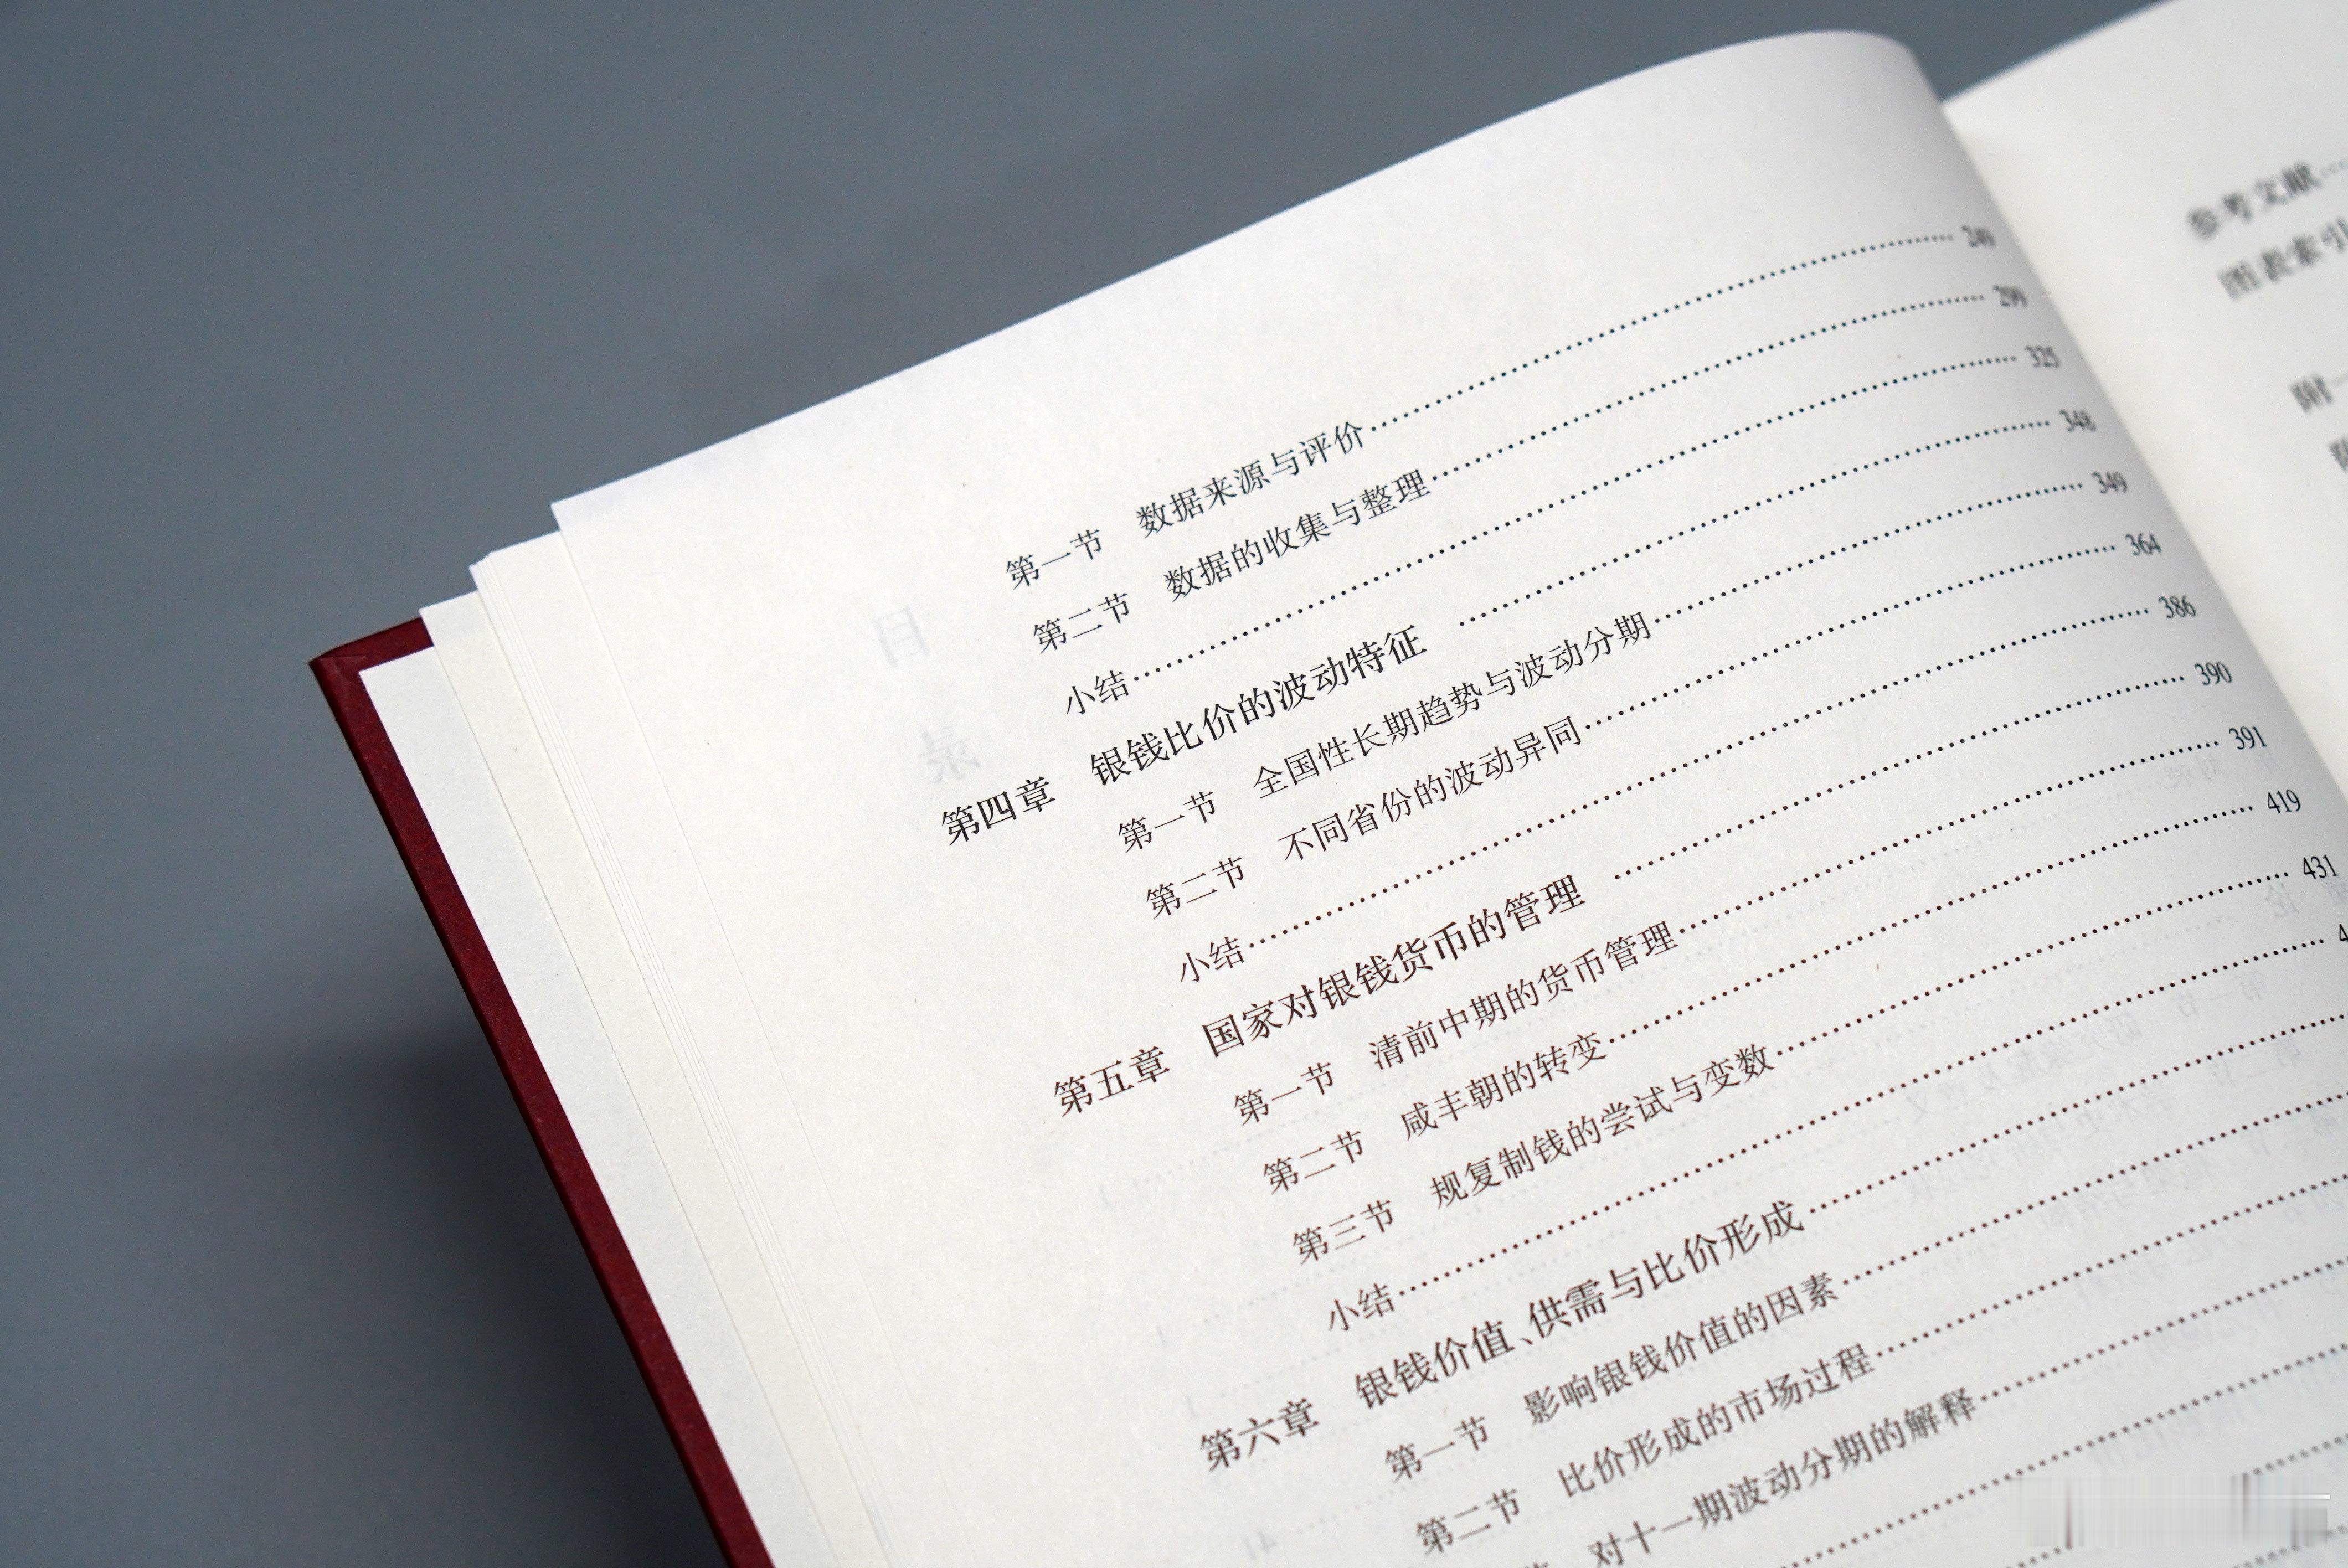 第一节 数据来源与评价 249
第二节 数据的收集与整理 299
小结 325
第四章 银钱比价的波动特征 348
第一节 全国性长期趋势与波动分期 349
第二节 不同省份的波动异同 364
小结 386
第五章 国家对银钱货币的管理 390
第一节 清前中期的货币管理 391
第二节 咸丰朝的转变 419
第三节 规复制钱的尝试与变数 431
小结
第六章 银钱价值、供需与比价形成
第一节 影响银钱价值的因素
第二节 比价形成的市场过程
对十一期波动分期的解释
参考文献
图表索引
附一